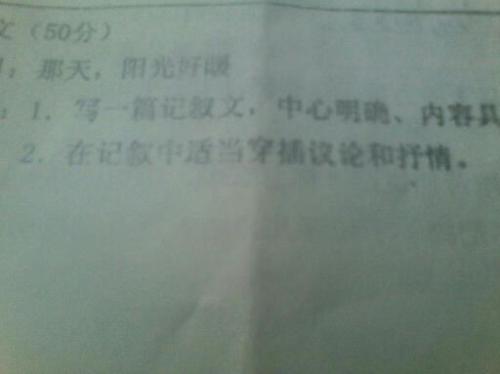 文（50分）
：那天，阳光好暖
：1．写一篇记叙文，中心明确、内容具
2．在记叙中适当穿插议论和抒情。